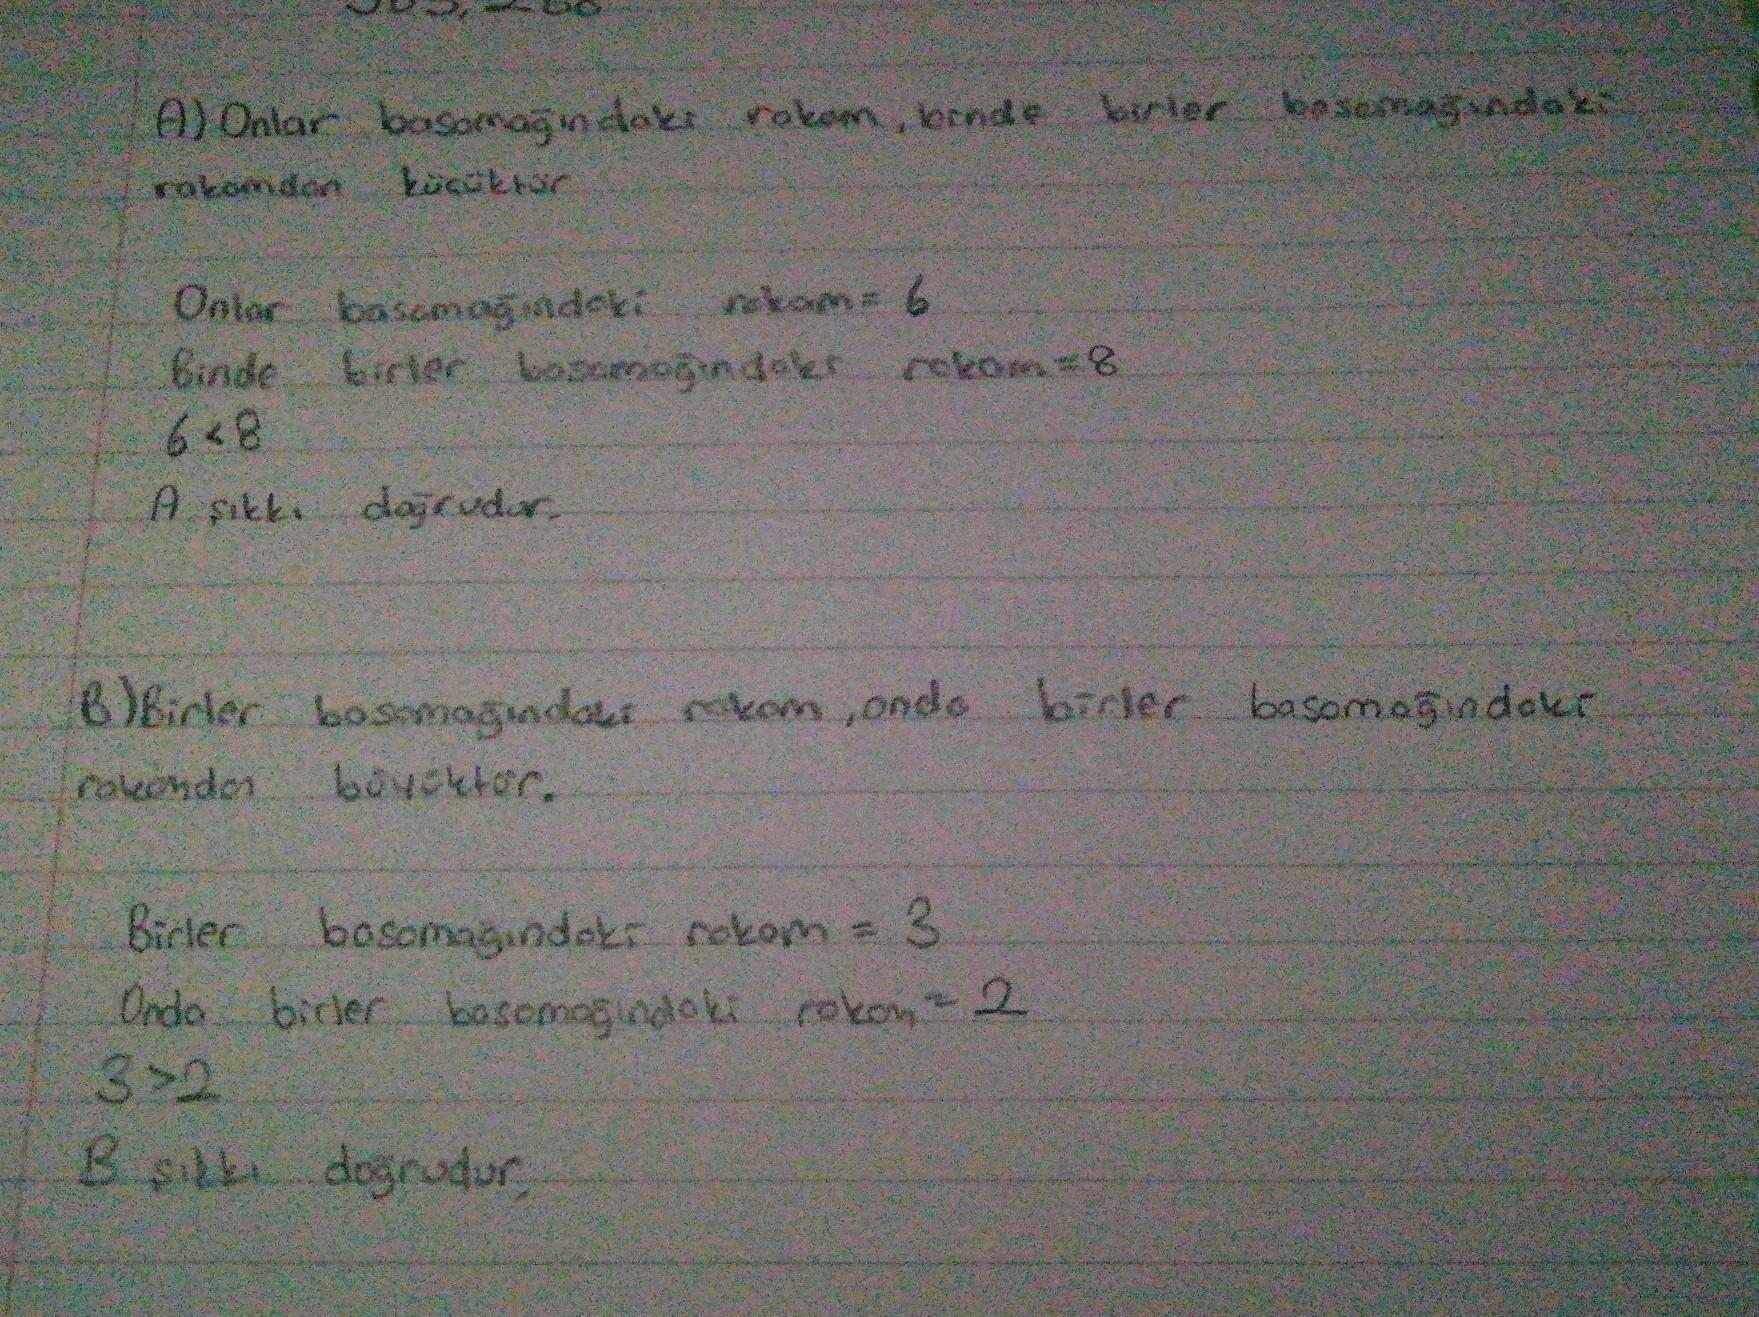 A) Onlar basamağındaki rakam, binde birler basamağındaki
rakamdan küçüktür
Onlar basamağındaki rakam = 6
Binde birler basamağındaki rakam = 8
6 < 8
A şıkkı doğrudur.
B) Birler basamağındaki rakam, onda birler basamağındaki
rakamdan büyüktür.
Birler basamağındaki rakam = 3
Onda birler basamağındaki rakam = 2
3 > 2
B şıkkı doğrudur.